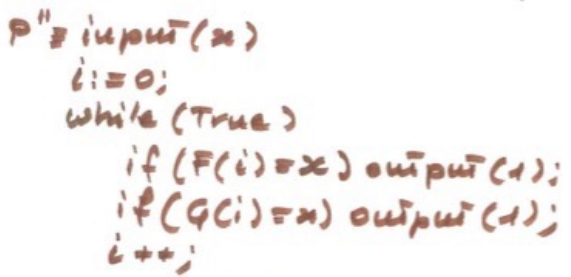 P"≡ input(x)
i:=0;
while (True)
if (F(i)=x) output(1);
if (G(i)=x) output(1);
i++;